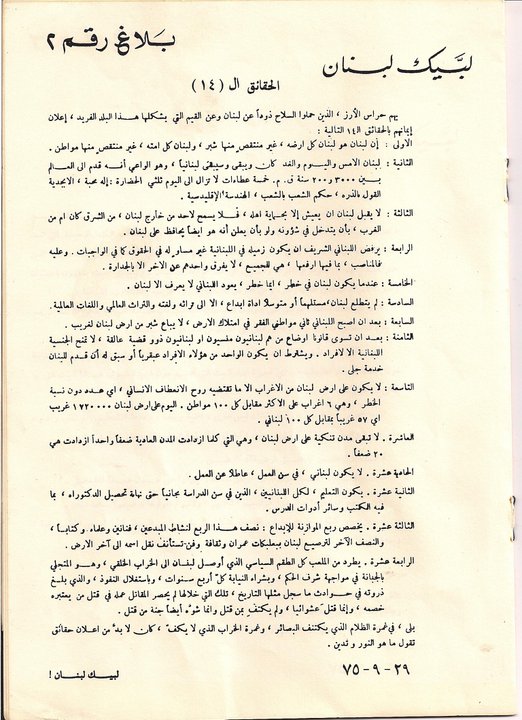 بَلاغ رقم ٢
لبَّيك لبنان
الحقائق ال ( ١٤ )
يهم حراس الأرز ، الذين حملوا السلاح ذوداً عن لبنان وعن القيم التي يشكلها هذا البلد الفريد ، إعلان
إيمانهم بالحقائق الـ١٤ التالية :
الأولى : إن لبنان هو لبنان كل ارضه ، غير منتقص منها شبر ، ولبنان كل امته ، غير منتقص منها مواطن .
الثانية : لبنان الامس واليوم والغد كان ويبقى وسيبقى لبنانياً ، وهو الواعي أنه قدم الى العالم
بين ٣٠٠٠ و٢٠٠ سنة ق . م . خمسة عطاءات لا تزال الى اليوم ثلثي الحضارة : إله محبة ، الابجدية
القول بالذره ، حكم الشعب بالشعب ، الهندسة الإقليدسية .
الثالثة : لا يقبل لبنان ان يعيش إلا بحماية اهله ، فلا يسمح لاحد من خارج لبنان ، من الشرق كان ام من
الغرب ، بأن يتدخل في شؤونه ولو بأن يعلن أنه هو ايضاً يحافظ على لبنان .
الرابعة : يرفض اللبناني الشريف ان يكون زميله في اللبنانية غير مساو له في الحقوق كما في الواجبات . وعليه
فالمناصب ، بما فيها ارفعها ، هي للجميع ، لا يفرق واحدهم عن الاخر الا بالجدارة .
الخامسة : عندما يكون لبنان في خطر ، ايما خطر ، يعود اللبناني لا يعرف الا لبنان .
السادسة : لم يتطلع لبنان ، مستلهماً أو متوسلاً اداة ابداع ، الا الى تراثه ولغته والتراث العالمي واللغات العالمية.
السابعة : بعد ان اصبح اللبناني ثاني مواطني الفقر في امتلاك الارض ، لا يباع شبر من ارض لبنان لغريب .
الثامنة : بعد ان تسوى قانونا اوضاع من هم لبنانيون منسيون او لبنانيون ذوو قضية عالقة ، لا تمنح الجنسية
اللبنانية الا لافراد . ويشترط ان يكون الواحد من هؤلاء الافراد عبقرياً أو سبق له أن قدم للبنان
خدمة جلى .
التاسعة : لا يكون على ارض لبنان من الاغراب الا ما تقتضيه روح الانعطاف الانساني ، اي هدد دون نسبة
الخطر ، وهي ٦ اغراب على الاكثر مقابل كل ١٠٠ مواطن . اليوم على ارض لبنان ١٧٢٠٠٠٠ غريب
اي ٥٧ غريباً مقابل كل ١٠٠ لبناني .
العاشرة . لا تبقى مدن تنكية على ارض لبنان ، وهي التي كلما ازدادت المدن العادية ضعفاً واحداً ازدادت هي
٢٠ ضعفاً .
الحادية عشرة . لا يكون لبناني ، في سن العمل ، عاطلا عن العمل .
الثانية عشرة . يكون التعليم ، لكل اللبنانيين ، الذين في سن الدراسة مجانياً حتى نهاية تحصيل الدكتوراه ، بما
فيه الكتب وسائر أدوات الدرس .
الثالثة عشرة . يخصص ربع الموازنة للإبداع : نصف هذا الربع لنشاط المبدعين ، فنانين وعلماء وكتاباً ،
والنصف الآخر لترصيع لبنان ببعلبكات عمران وثقافة وفن تستأنف نقل اسمه الى آخر الارض .
الرابعة عشرة . يطرد من الملعب كل الطقم السياسي الذي أوصل لبنان الى الخراب الخلقي ، وهو المتجلي
بالجبانة في مواجهة شرف الحكم ، وبشراء النيابة كلّ أربع سنوات ، وباستغلال النفوذ ، والذي بلغ
ذروته في حوادث ما سجل مثلها التاريخ ، تلك التي خلالها لم يحصر المقاتل عمله في قتل من يعتبره
خصمه ، وإنما قتلَ عشوائيا ، ولم يكتف بمن قتل وانما شوَّه أيضاً جثة من قتل .
بلى ، في غمرة الظلام الذي يكتنف البصائر ، وغمرة الخراب الذي لا يكف ، كان لا بدَّ من اعلان حقائق
تقول ما هو النور وتدين .
٢٩-٩-٧٥
لبيك لبنان !